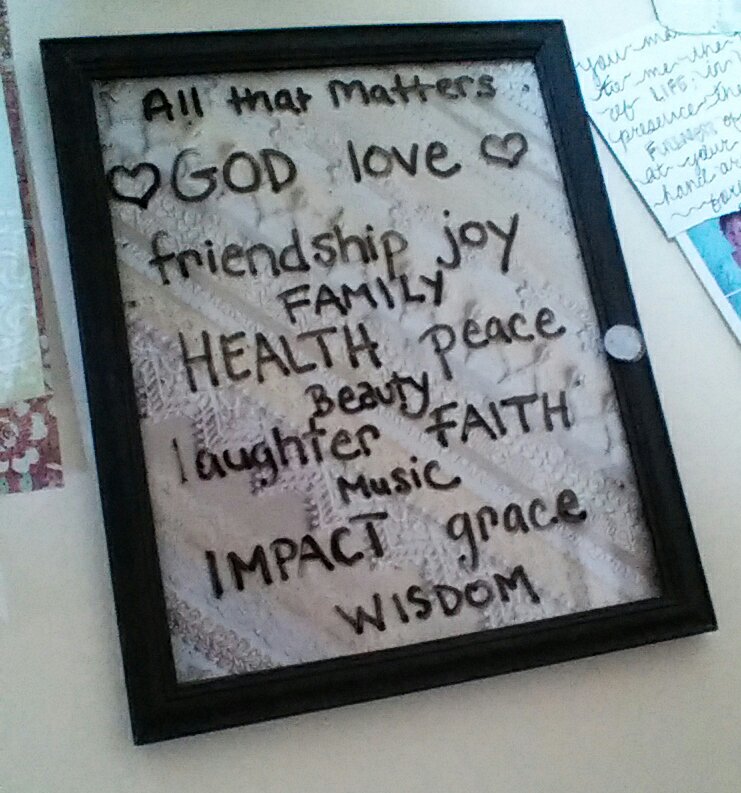 All that Matters
♡ GOD love ♡
friendship joy
FAMILY
HEALTH peace
Beauty
laughter FAITH
Music
IMPACT grace
WISDOM
you
to me the
of LIFE; in
presence the
FULLNESS of
at your
hand are